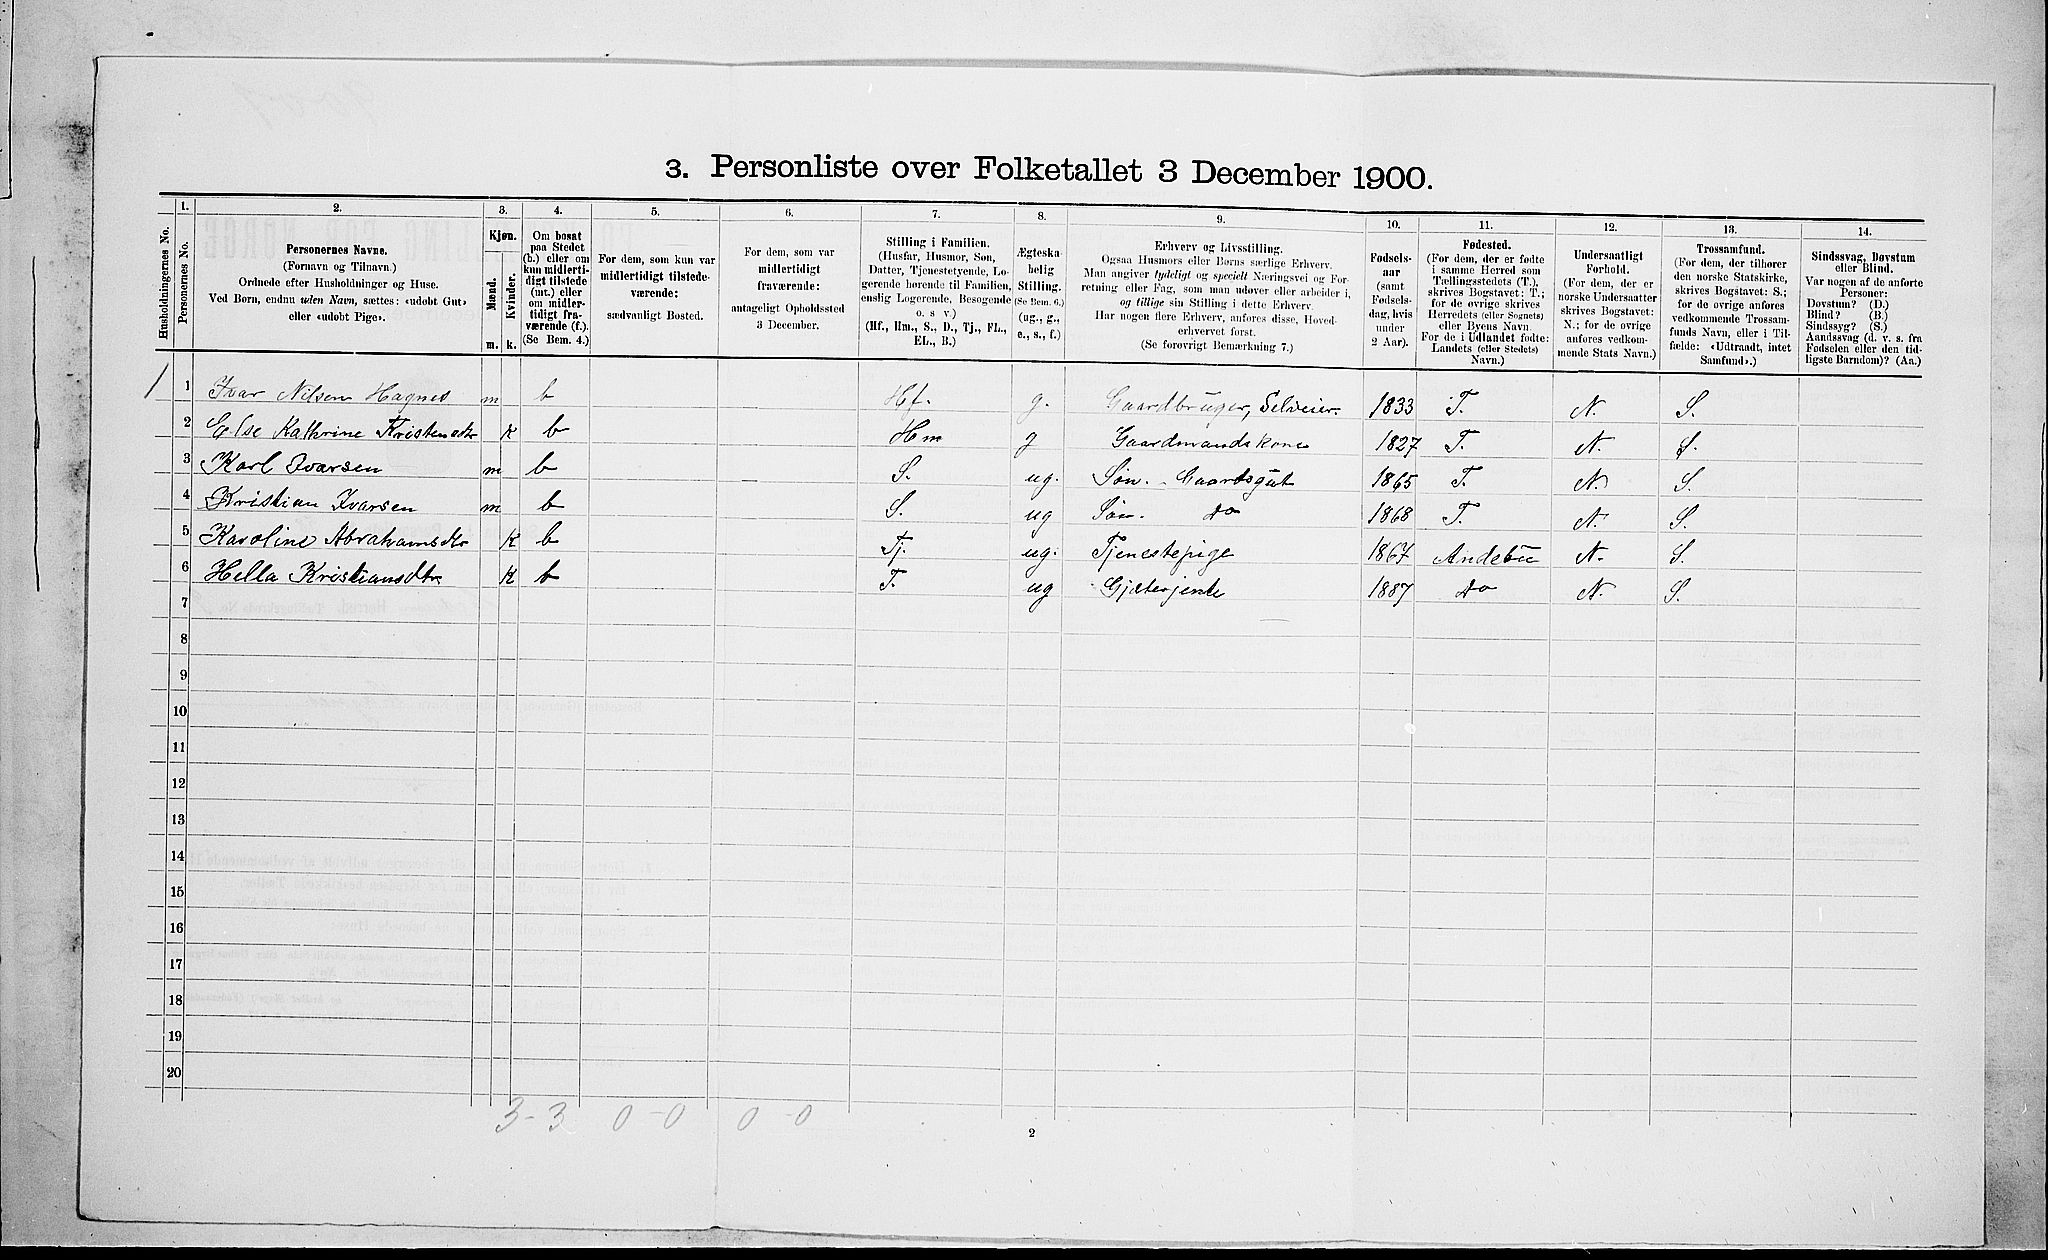 3. Personliste over Folketallet 3 December 1900.
1. 2. 3. 4. 5. 6. 7. 8. 9. 10. 11. 12. 13. 14.
Husholdningernes No.
Personernes No.
Personernes Navne.
(Fornavn og Tilnavn.)
Ordnede efter Husholdninger og Huse.
Ved Børn, endnu uden Navn, sættes: «udøbt Gut»
eller «udøbt Pige».
Kjøn.
Mænd.
Kvinder.
m. k.
Om bosat
paa Stedet
(b.) eller om
kun midlerti-
digt tilstede
(mt.) eller
om midler-
tidigt fra-
værende (f.).
(Se Bem. 4.)
For dem, som kun var
midlertidigt tilstede-
værende:
sædvanligt Bosted.
For dem, som var
midlertidigt
fraværende:
antageligt Opholdssted
3 December.
Stilling i Familien.
(Husfar, Husmor, Søn,
Datter, Tjenestetyende, Lo-
gerende hørende til Familien,
enslig Logerende, Besøgende
o. s v.)
(Hf., Hm., S., D., Tj., FL.,
EL., B.)
Ægteska-
belig
Stilling.
(Se Bem. 6.)
(ug., g.,
e., s., f.)
Erhverv og Livsstilling.
Ogsaa Husmors eller Børns særlige Erhverv.
Man angiver tydeligt og specielt Næringsvei og For-
retning eller Fag, som man udøver eller arbeider i,
og tillige sin Stilling i dette Erhverv.
Har nogen flere Erhverv, anføres disse, Hoved-
erhvervet først.
(Se forøvrigt Bemærkning 7.)
Fødsels-
aar
(samt
Fødsels-
dag, hvis
under
2 Aar).
Fødested.
(For dem, der er fødte
i samme Herred som
Tællingsstedets (T.),
skrives Bogstavet: T.;
for de øvrige skrives
Herredets (eller Sognets)
eller Byens Navn.
For de i Udlandet fødte:
Landets (eller Stedets)
Navn.)
Undersaatligt
Forhold.
(For dem, der er
norske Undersaatter
skrives Bogstavet:
N.; for de øvrige
anføres vedkom-
mende Stats Navn.)
Trossamfund.
(For dem, der tilhører
den norske Statskirke,
skrives Bogstavet: S.;
for de øvrige anføres
vedkommende Trossam-
funds Navn, eller i Til-
fælde: «Udtraadt, intet
Samfund».)
Sindssvag, Døvstum
eller Blind.
Var nogen af de anførte
Personer:
Døvstum? (D.)
Blind? (B.)
Sindssyg? (S.)
Aandssvag (d. v. s. fra
Fødselen eller den tid-
ligste Barndom)? (Aa.)
1 1 Ivar Nilsen Hagnes m b Hf. g. Gaardbruger, Selveier. 1833 T. N. S.
2 Else Kathrine Kristensdtr k b Hm g Gaardmandskone 1827 T. N. S.
3 Karl Ivarsen m b S. ug. Søn. Gaardsgut 1865 T. N. S.
4 Kristian Ivarsen m b S. ug Søn. do 1868 T. N. S.
5 Karoline Abrahamsdtr k b Tj. ug. Tjenestepige 1867 Andebu N. S.
6 Hella Kristiansdtr. k b T. ug Gjæterjente 1887 do N. S.
7
8
9
10
11
12
13
14
15
16
17
18
19
20
3-3 0-0 0-0
2